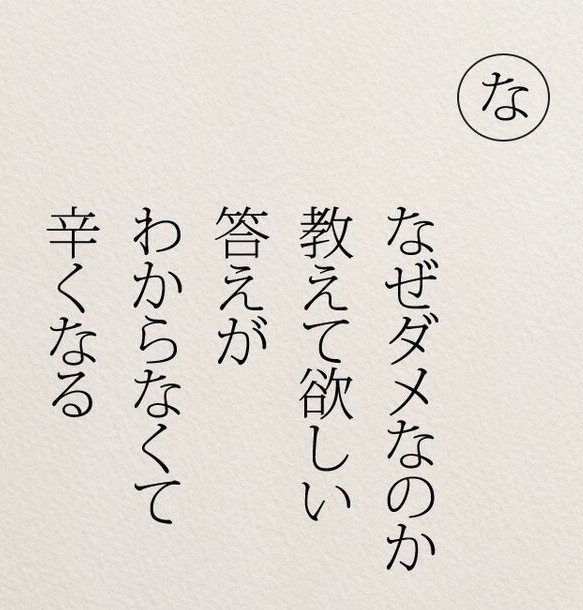 な
なぜダメなのか
教えて欲しい
答えが
わからなくて
辛くなる